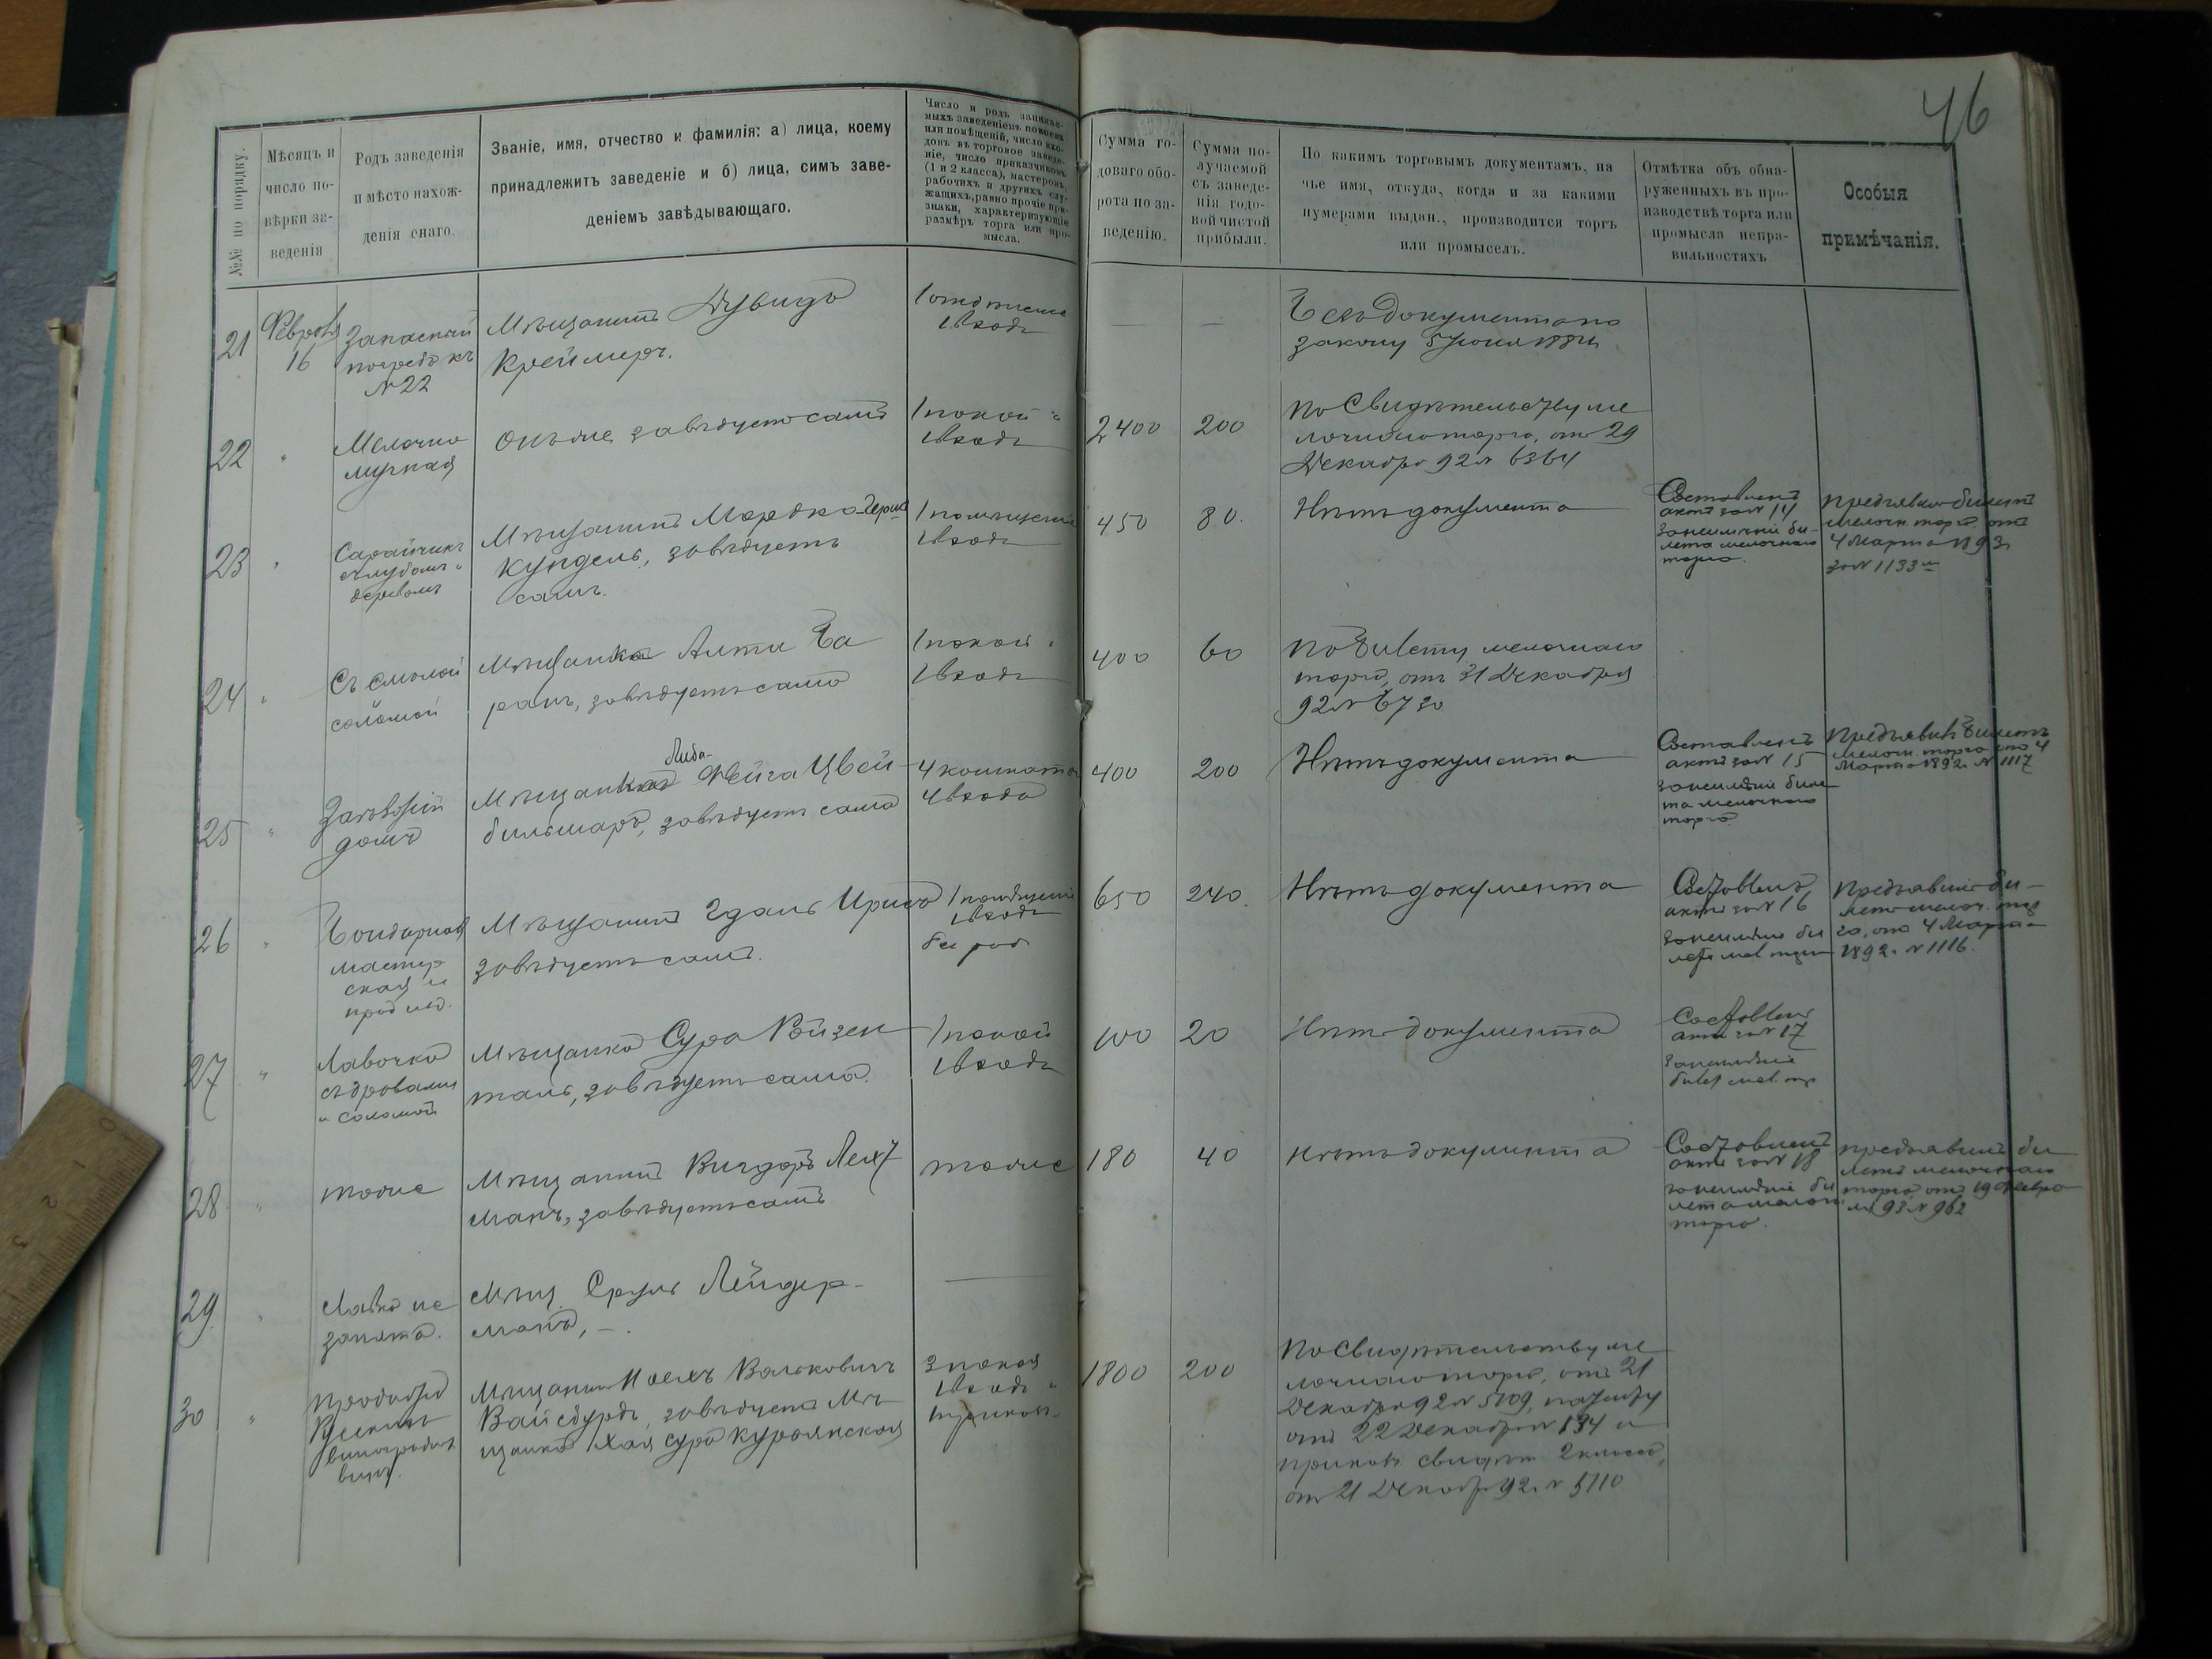 46
№№ по порядку.
Мѣсяцъ и
число по-
вѣрки за-
веденія
Родъ заведенія
и мѣсто нахож-
денія онаго.
Званіе, имя, отчество и фамилія: а) лица, коему
принадлежитъ заведеніе и б) лица, симъ заве-
деніемъ завѣдывающаго.
Число и родъ занимае-
мыхъ заведеніемъ покоевъ
или помѣщеній, число вхо-
довъ въ торговое заведе-
ніе, число приказчиковъ
(1 и 2 класса), мастеровъ,
рабочихъ и другихъ слу-
жащихъ, равно прочіе при-
знаки, характеризующіе
размѣръ торга или про-
мысла.
Сумма го-
доваго обо-
рота по за-
веденію.
Сумма по-
лучаемой
съ заведе-
нія годо-
вой чистой
прибыли.
По какимъ торговымъ документамъ, на
чье имя, откуда, когда и за какими
нумерами выдан., производится торгъ
или промыселъ.
Отмѣтка объ обна-
руженныхъ въ про-
изводствѣ торга или
промысла непра-
вильностяхъ
Особыя
примѣчанія.
21
16
Запасный
погребъ къ
№ 22
Мѣщанинъ Дувидъ
Креймеръ.
1 входъ
— —
Безъ документа по
закону 5 Іюня 1884
22 "
Мелочно
мучная
Онъ же, завѣдуетъ самъ
1 покой и
1 входъ
2400
200
По Свидѣтельству ме
лочнаго торга, отъ 29
Декабря 92 № 6364
23 "
деревомъ
Мѣщанинъ Мордко-Герш
Кундель, завѣдуетъ
самъ.
1 помѣщеніе
1 входъ
450
80.
Нѣтъ документа
Составленъ
актъ за № 14
за неимѣніе би-
лета мелочнаго
торга.
Предъявил билетъ
мелочн. торга отъ
4 Марта 1893
за № 1133
24 "
Съ
соломой
Мѣщанка Алта Ба
ранъ, завѣдуетъ сама
1 покой и
1 входъ
400
60
По билету мелочнаго
торга, отъ 31 Декабря
92 № 6730
25 "
Заѣзжій
домъ
Либа-
Мѣщанка Фейга Цвей-
бильмаръ, завѣдуетъ сама
4 комнаты
4 входа
400
200
Нѣтъ документа
Составленъ
актъ за № 15
за неимѣніе биле
та мелочнаго
торга
Предъявил билетъ
мелочн. торга отъ 4
Марта 1892 № 1117
26 "
Бондарная
мастер
ская и
Мѣщанинъ Гдаль Ирисъ
завѣдуетъ самъ.
1 помѣщеніе
1 входъ
без раб
650
240.
Нѣтъ документа
Составленъ
актъ за № 16
за неимѣніе би
лета
Предъявил би-
летъ мелоч. тор
га, отъ 4 Марта
1892 № 1116.
27 "
Лавочка
съ дровами
и соломой
Мѣщанка Сура Ройзен
таль, завѣдуетъ сама.
1 покой
1 входъ
100
20
Нѣтъ документа
Составленъ
актъ за № 17
за неимѣніе
28 "
тоже
Мѣщанинъ Вигдоръ Лехт
манъ, завѣдуетъ самъ
тоже
180
40
Нѣтъ документа
Составленъ
актъ за № 18
за неимѣніе би
лета мелочн
торга.
предъявилъ би
летъ мелочнаго
торга, отъ 19 Февра
ля 93 № 962
29 "
Лавка не
занята.
Мѣщ. Сруль Лейдер-
манъ, —.
30 "
виноградныхъ
винъ.
Мѣщанинъ Вольковичъ
Вайсбурдъ, завѣдуетъ Мѣ
щанка Хая Сура Курялнская
3 покоя
1 входъ и
1 приказ-
1800
200
По Свидѣтельству ме
лочнаго торга, отъ 21
Декабря 92 № 5109, патенту
отъ 22 Декабря № 194 и
приказ. свидѣт. 2 класса,
отъ 21 Декабр 92 № 5110